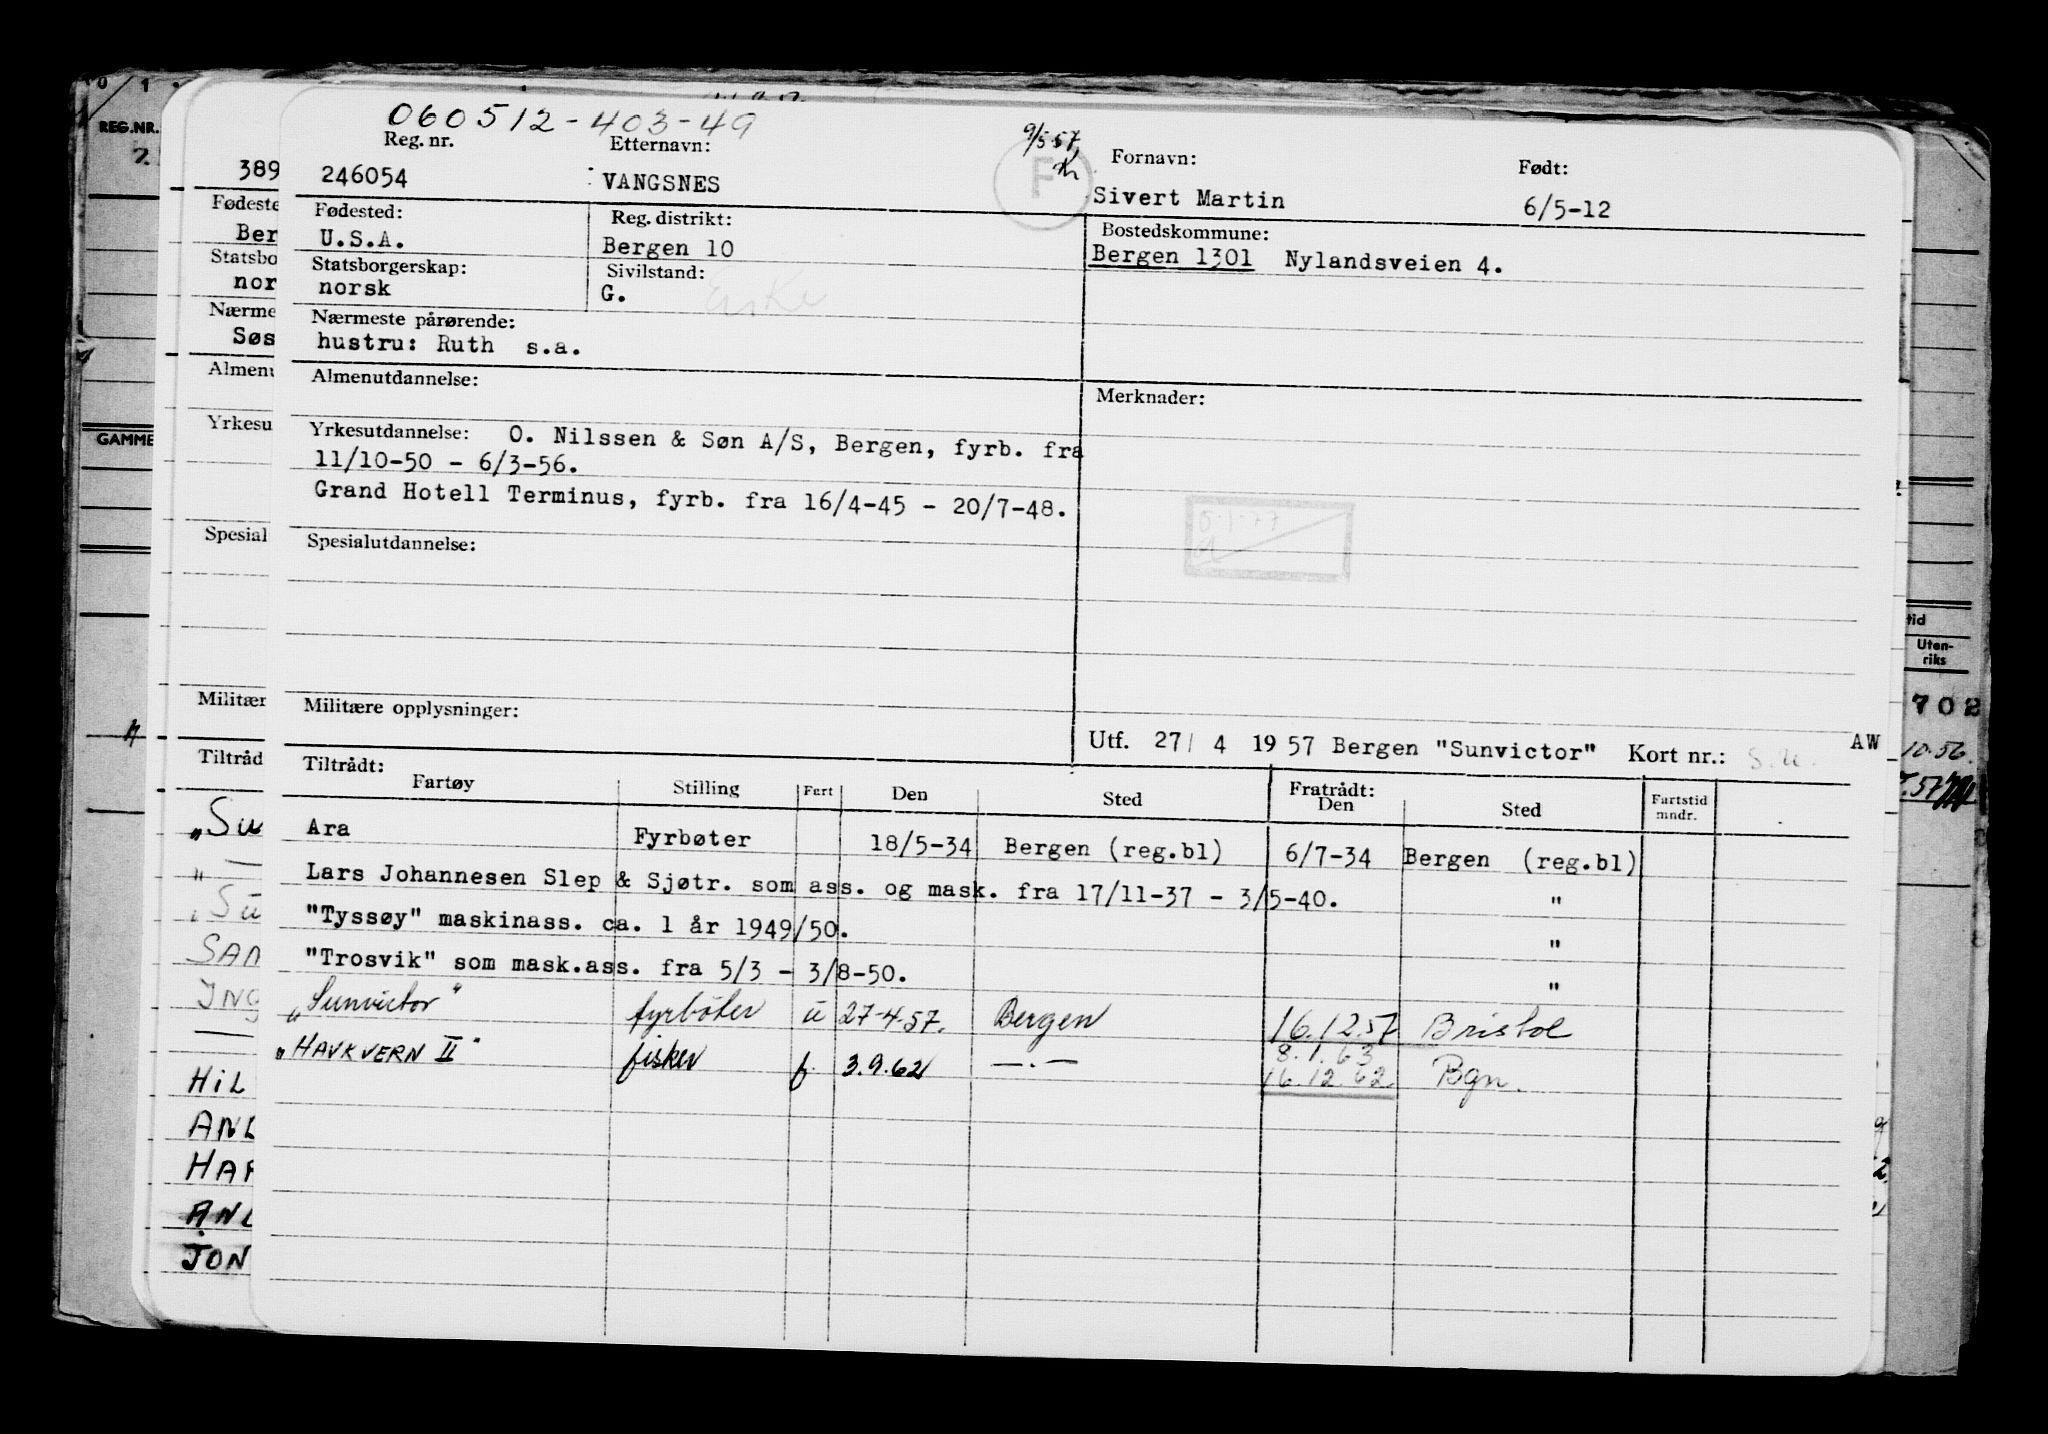 060512-403-49
9/5 57
Reg. nr. Etternavn: F Fornavn: Født:
246054 VANGSNES Sivert Martin 6/5-12
Fødested: Reg. distrikt: Bostedskommune:
U.S.A. Bergen 10 Bergen 1301 Nylandsveien 4.
Statsborgerskap: Sivilstand:
norsk G. Enke
Nærmeste pårørende:
hustru: Ruth s.a.
Almenutdannelse: Merknader:
Yrkesutdannelse: O. Nilssen & Søn A/S, Bergen, fyrb. fra
11/10-50 - 6/3-56.
Grand Hotell Terminus, fyrb. fra 16/4-45 - 20/7-48.
Spesialutdannelse:
Militære opplysninger:
Utf. 27/ 4 1957 Bergen "Sunvictor" Kort nr.: AW
Tiltrådt: Fratrådt:
Fartøy Stilling Fart Den Sted Den Sted Fartstid mndr.
Ara Fyrbøter 18/5-34 Bergen (reg.bl) 6/7-34 Bergen (reg.bl)
Lars Johannesen Slep & Sjøtr. som ass. og mask. fra 17/11-37 - 3/5-40. "
"Tyssøy" maskinass. ca. 1 år 1949/50. "
"Trosvik" som mask.ass. fra 5/3 - 3/8-50. "
„Sunvictor" fyrbøter u 27-4-57. Bergen 16.12.57 Bristol
8.1.63
„HAVKVERN II" fisker f. 3.9.62 —.— 16.12.62 Bgn.
REG.NR.
389
Fødeste
Ber
Statsbo
nor
Nærme
Søs
Almenu
Yrkesu
GAMME
Spesial
Militær
Tiltråd
„Su
"—
„Su
SAN
ING
—
HIL
ANL
HAR
ANL
JON
tid
Uten-
riks
702
10.56